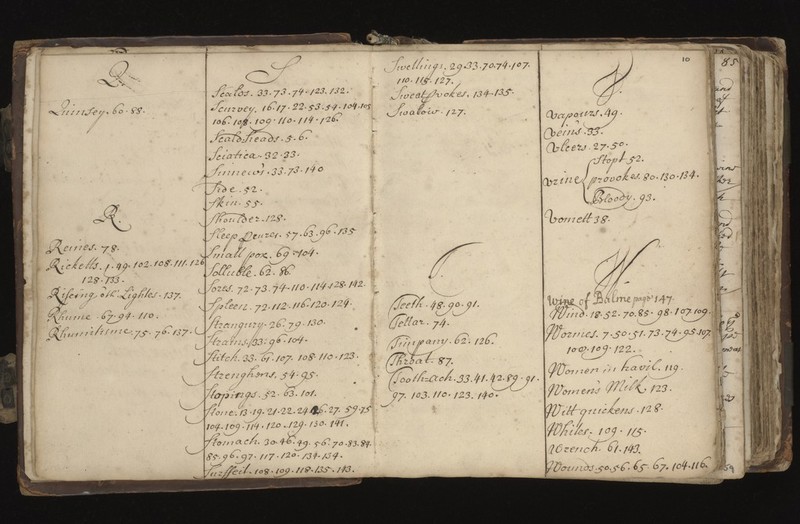 Q
Quinsey. 60. 88.
R
Reines. 78.
Ricketts. 1. 49. 102. 108. 111. 126
128. 133.
Riseing oth: Lightes. 137.
Rhume. 67. 94. 110.
Rhumitisme. 75. 76. 137.
S
Scalds. 33. 73. 74. 123. 132.
Scurvey. 16. 17. 22. 53. 54. 104. 105
106. 108. 109. 110. 114. 126.
Scald heads. 5. 6.
Sciatica. 32. 33.
Sinnews. 33. 73. 140
Side. 52.
Skin. 55.
Shoulder. 128.
Sleep 57. 63. 96. 135
Small pox. 69. 104.
Solluble. 62. 86
Sores. 72. 73. 74. 110. 114. 128. 142.
Spleen. 72. 112. 116. 120. 124.
Strangury. 26. 79. 130.
Strains. 33. 96. 104.
Stitch. 33. 61. 107. 108. 110. 123.
Strenghens. 54. 95.
Stopings. 52. 63. 101.
Stone. 13. 19. 21. 22. 24. 26. 27. 59. 75
104. 109. 114. 120. 129. 130. 141.
Stomach. 30. 46. 49. 56. 70. 83. 84.
85. 96. 97. 117. 120. 134. 134.
Surffeit. 108. 109. 118. 135. 143.
Swellings. 29. 33. 70. 74. 107.
110. 115. 127.
Sweat provokes. 134. 135.
Swalow. 127.
T.
Teeth. 48. 90. 91.
Tettar. 74.
Timpany. 62. 126.
Throat. 87.
Toothach. 33. 41. 42. 89. 91.
97. 103. 110. 123. 140.
10
V.
Vapours. 49.
Veins. 33.
Vlcers. 27. 50.
Stopt. 52.
Vrine provokes. 80. 130. 134.
Bloody. 93.
Vomett 38.
W
Wine of Balme page 147
Wind. 18. 52. 70. 85. 98. 107. 109.
Wormes. 7. 50. 51. 73. 74. 95. 107.
109. 122.
Women in travil. 119.
Women's Milk. 123.
Witt quickens. 128.
Whites. 109. 115.
Wrench. 61. 143.
Wounds. 50. 56. 65. 67. 104. 116.
85